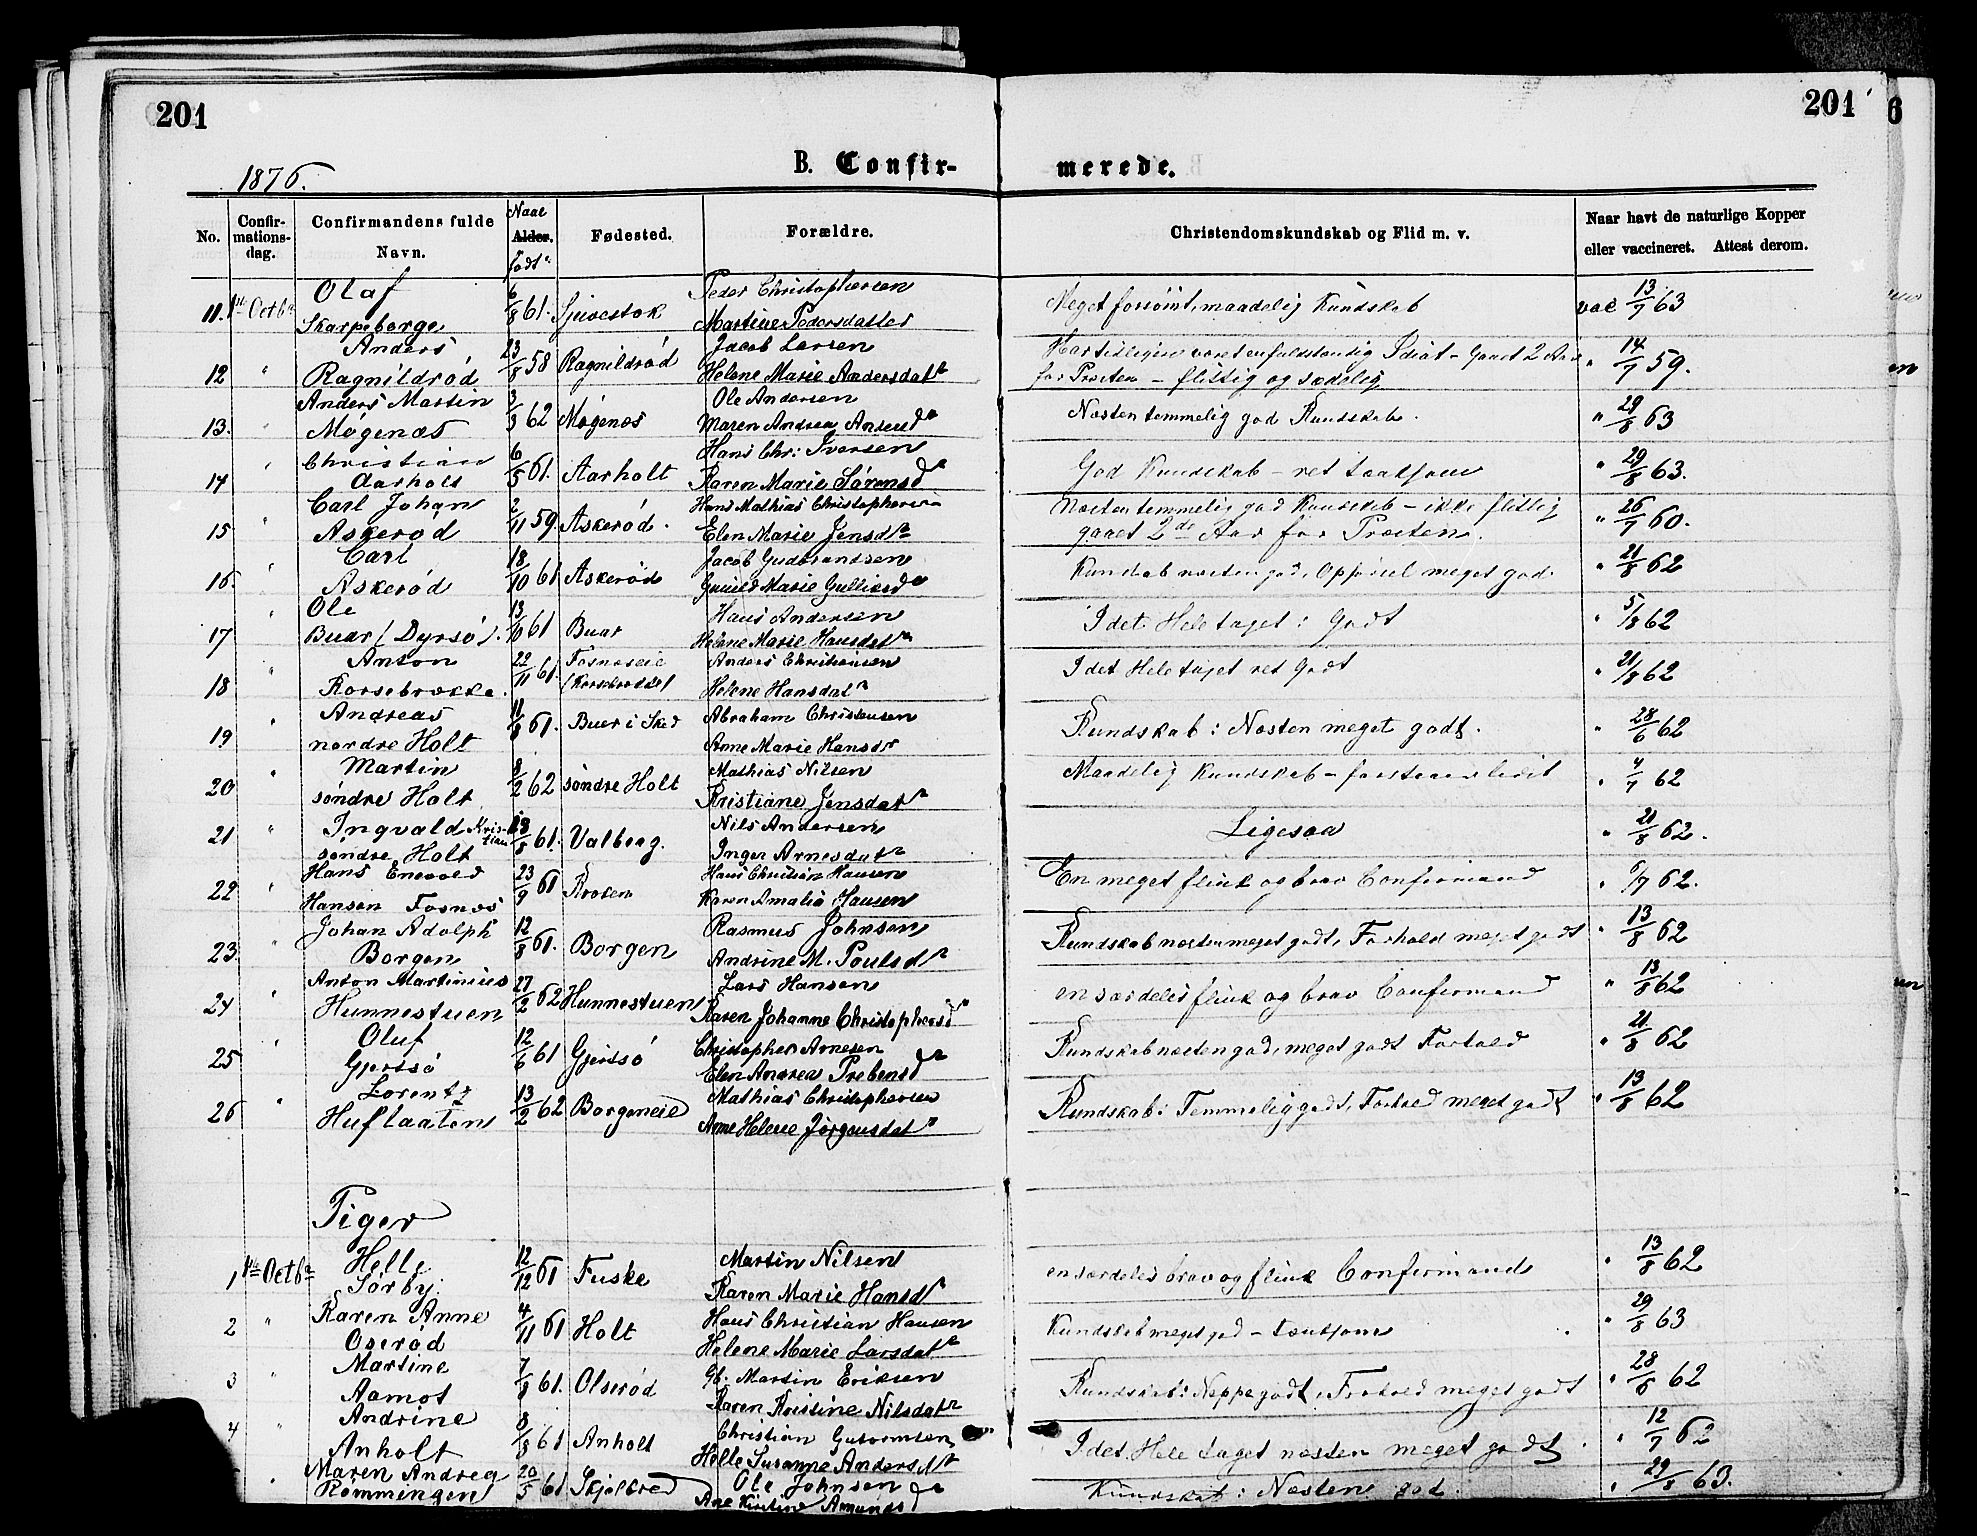 201
201
6
1876.
B. Confir-
merede.
No.
Confir-
mations-
dag.
Confirmandens fulde
Navn.
Naar
Alder.
født
Fødested.
Forældre.
Christendomskundskab og Flid m. v.
Naar havt de naturlige Kopper
eller vaccineret. Attest derom.
Olaf Peder Christophersen
11. 1ste Octbr Skarpeborge 6/8 61. Martine Pedersdatter Meget forsömt, maadelig Kundskab vac 13/7 63
Anders Jacob Larsen
12 " Ragnildröd 23/8 58 Ragnildröd Helene Marie Andersdatr " 14/7 59.
for Præsten – flittig og sædelig
Anders Martin Ole Andersen
13. " Mögenæs 3/3 62 Mögenæs Maren Andrea Næsten temmelig god Kundskab. " 29/8 63
Christian Hans Chr: Iversen
14 " Aarholt 6/5 61. Aarholt Karen Marie Sörensdr God Kundskab – ret " 29/8 63.
Carl Johan Hans Mathias Christophersen Næsten temmelig god Kundskab – ikke flittig
15 " Askeröd 2/11 59. Askeröd. Elen Marie Jensdtr gaaet 2de Aar for Præsten. " 26/7 60.
Carl Jacob Gudbrandsen
16. " Askeröd 18/10 61 Askeröd Marie Kundskab næsten god, Opförsel meget god. " 21/8 62
Ole Hans Andersen
17 " Buar (Dyrsö). 13/10 61 Buar Helene Marie Hansdatr I det Hele taget: Godt " 5/8 62
Anton Fosnæseie Anders Christiansen
18 " Korsebrække. 22/11 61. (Korsebrække) Helene Hansdatr I det Hele taget ret Godt " 21/8 62
Andreas Abraham Christensen
19 " nordre Holt 11/8 61. Buer i Sked Anne Marie Hansdr Kundskab: Næsten meget godt. " 28/6 62
Martin Mathias Nilsen
20 " söndre Holt 8/2 62 söndre Holt Kristiane Jensdatr Maadelig Kundskab – " 4/7 62
Ingvald Kris- Nils Andersen
tian
21 " söndre Holt 61. Valberg. Inger Arnesdatr Ligesaa " 21/8 62.
Hans Enevold Hans Christian Hansen
22 " Hansen Fosnæs 23/9 61 Kroken Karen Amalia Hansen En meget flink og brav Confirmand " 6/7 62.
Johan Adolph Rasmus Johnsen
23. " Borgen 12/8 61. Borgen Andrine M. Poulsdtr Kundskab næsten meget godt, Forhold meget godt " 13/8 62
Anton Martinius Lars Hansen
24 " Hunnestuen 27/2 62 Hunnestuen Karen Johanne Christophersdr en særdeles flink og brav Confirmand " 13/8 62
Oluf Christopher Arnesen
25 " Gjersö 12/6 61 Gjersö Elen Andrea Prebensdr Kundskab næsten god, meget godt Forhold " 21/8 62
Lorentz Mathias Christophersen
26 " Huflaaten 13/2 62 Borgeneie Anne Helene Jörgensdatr Kundskab: Temmelig godt, Forhold meget godt " 13/8 62
Piger
Helle Martin Nilsen
1 1ste Octbr Sörby. 12/12 61 Fuske Karen Marie Hansdtr en særdeles brav og flink Confirmand " 13/8 62
Karen Anne Hans Christian Hansen
2 " Oseröd 4/11 61 Holt Helene Marie Larsdatr Kundskab meget god – " 29/8 63
Martine Martin Eriksen
3 " Aamot 7/8 61. Olseröd Karen Kristine Nilsdatr Kundskab: Neppe godt, Forhold meget godt " 28/6 62
Andrine Christian Guttormsen
4 " Anholt 8/8 61 Anholt Helle Susanne Andersdtr I det Hele taget næsten meget godt. " 12/7 62
Maren Andrea Ole Johnsen
" Römmingen 20/5 61 Skjelbred Ane Kirstine Amundsdr Kundskab: Næsten god. " 29/8 63.